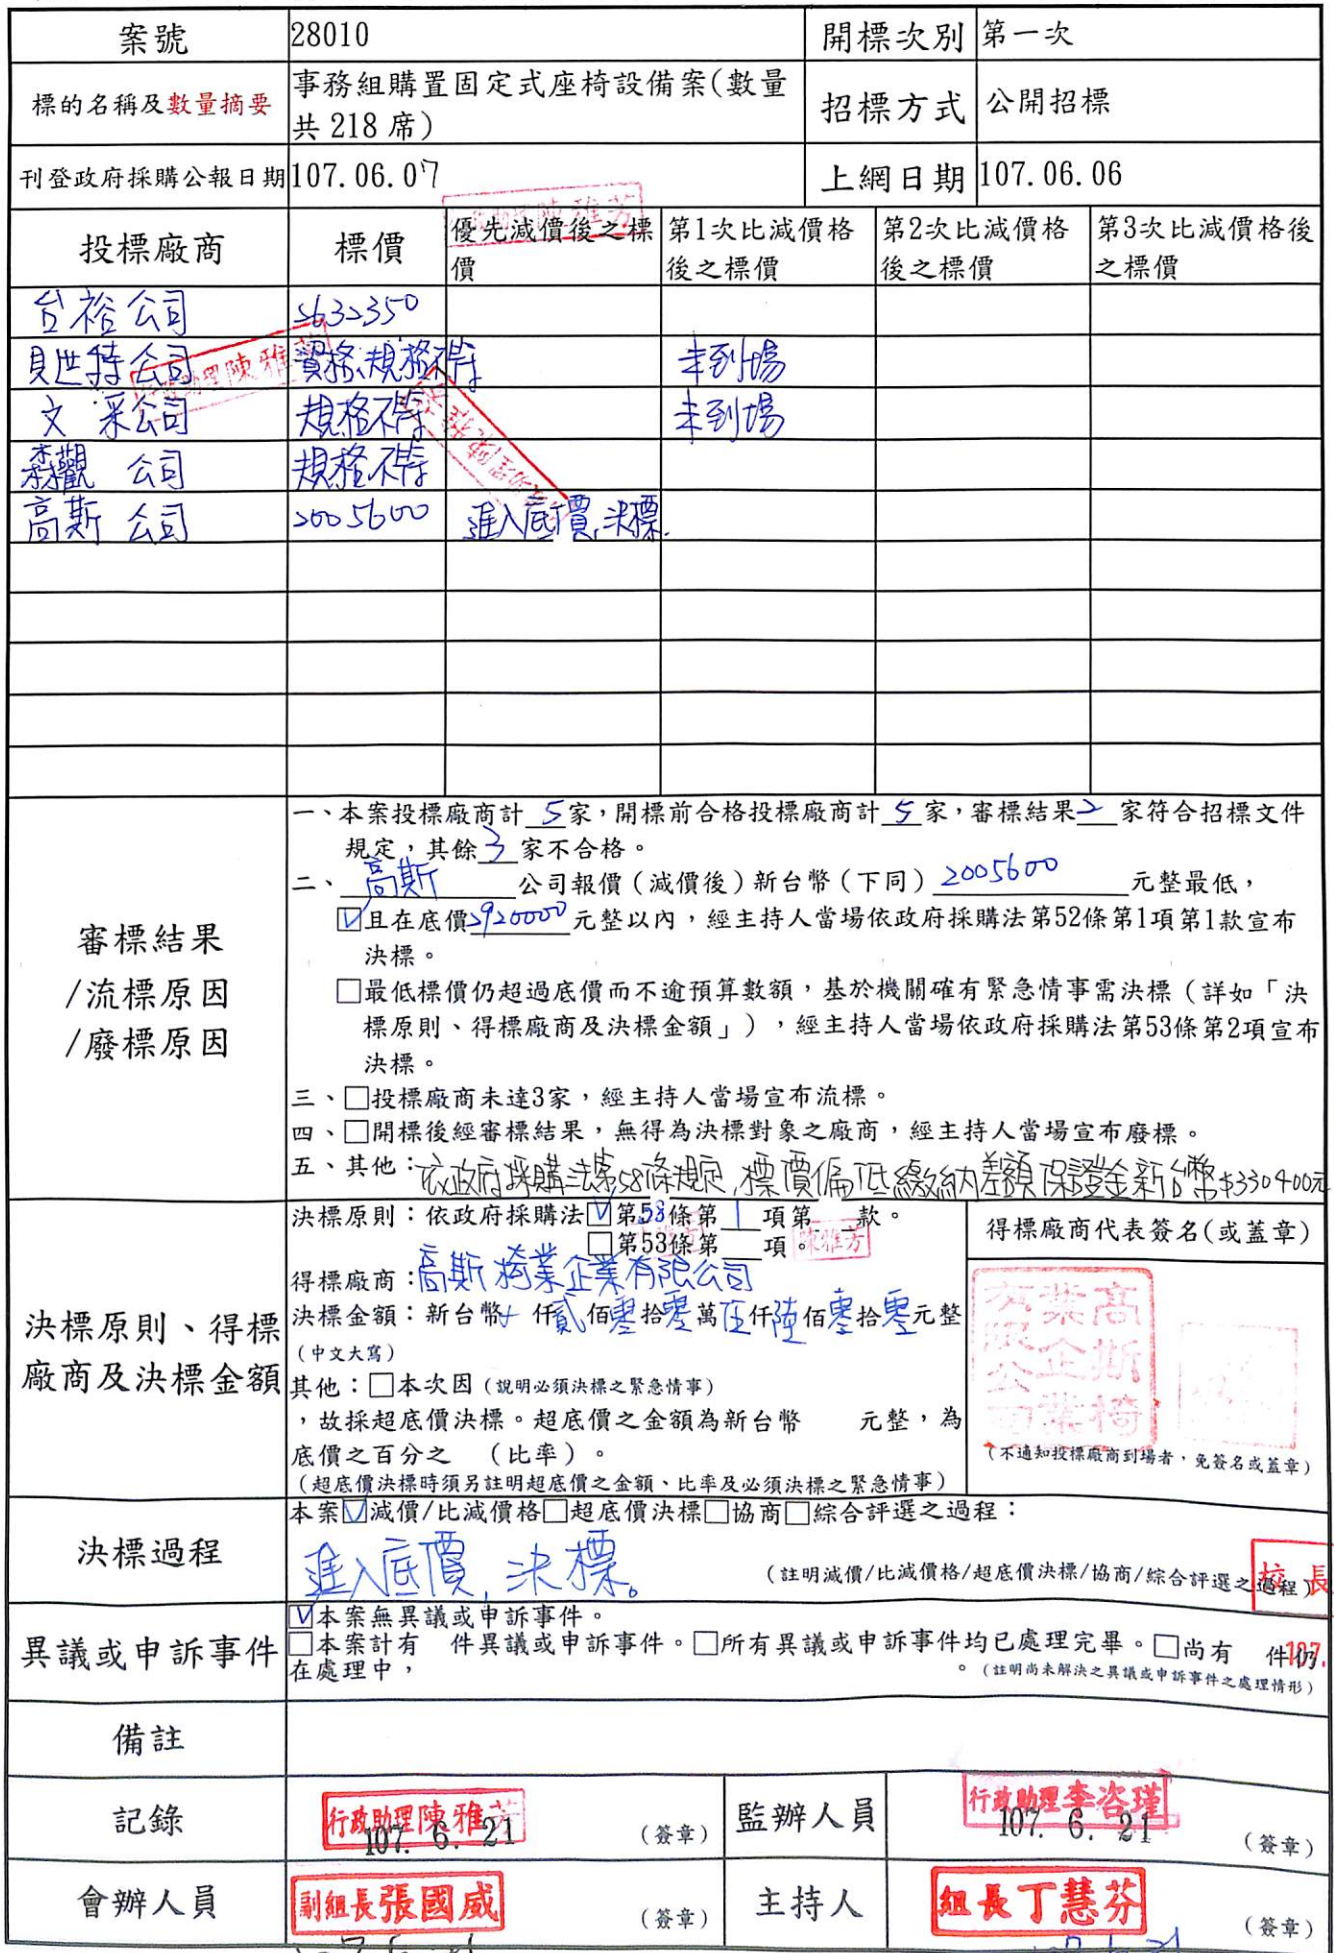 案號 28010 開標次別 第一次
標的名稱及數量摘要 事務組購置固定式座椅設備案(數量
共 218 席) 招標方式 公開招標
刊登政府採購公報日期 107.06.07 上網日期 107.06.06
投標廠商 標價 優先減價後之標價 第1次比減價格後之標價 第2次比減價格後之標價 第3次比減價格後之標價
台裕公司 2632350
貝世特公司 資格、規格不符 未到場
文采公司 規格不符 未到場
森觀 公司 規格不符
高斯 公司 2005600 進入底價,決標.
審標結果
/流標原因
/廢標原因
一、本案投標廠商計 5 家,開標前合格投標廠商計 5 家,審標結果 2 家符合招標文件
規定,其餘 3 家不合格。
二、 高斯 公司報價(減價後)新台幣(下同) 2005600 元整最低,
☑且在底價2920000元整以內,經主持人當場依政府採購法第52條第1項第1款宣布
決標。
□最低標價仍超過底價而不逾預算數額,基於機關確有緊急情事需決標(詳如「決
標原則、得標廠商及決標金額」),經主持人當場依政府採購法第53條第2項宣布
決標。
三、□投標廠商未達3家,經主持人當場宣布流標。
四、□開標後經審標結果,無得為決標對象之廠商,經主持人當場宣布廢標。
五、其他:依政府採購法第58條規定,標價偏低繳納差額保證金新台幣$330400元
決標原則、得標
廠商及決標金額
決標原則:依政府採購法☑第58條第 1 項第 款。
□第53條第 項。
陳雅芳
得標廠商:高斯椅業企業有限公司
決標金額:新台幣 仟貳佰零拾零萬伍仟陸佰零拾零元整
(中文大寫)
其他:□本次因(說明必須決標之緊急情事)
,故採超底價決標。超底價之金額為新台幣 元整,為
底價之百分之 (比率)。
(超底價決標時須另註明超底價之金額、比率及必須決標之緊急情事)
得標廠商代表簽名(或蓋章)
高斯椅業企業有限公司
(不通知投標廠商到場者,免簽名或蓋章)
決標過程
本案☑減價/比減價格□超底價決標□協商□綜合評選之過程:
進入底價,決標。
(註明減價/比減價格/超底價決標/協商/綜合評選之過程)
校長
異議或申訴事件
☑本案無異議或申訴事件。
□本案計有 件異議或申訴事件。□所有異議或申訴事件均已處理完畢。□尚有 件仍
107.
在處理中, 。(註明尚未解決之異議或申訴事件之處理情形)
備註
記錄 行政助理陳雅芳 107. 6. 21 (簽章) 監辦人員 行政助理李咨瑾 107. 6. 21 (簽章)
會辦人員 副組長張國威 (簽章) 主持人 組長丁慧芬 (簽章)